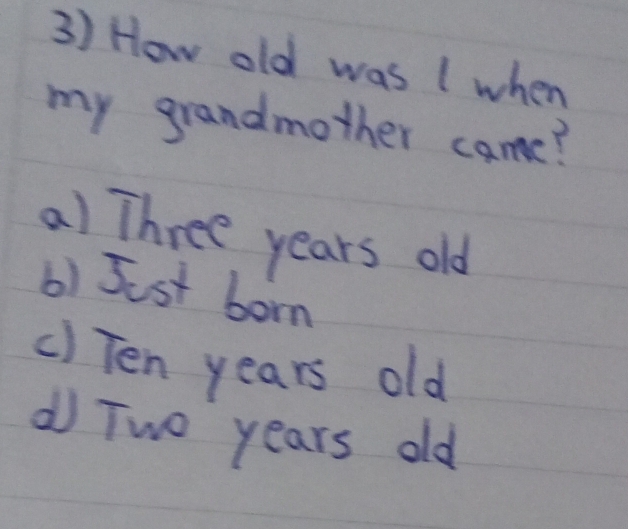 3) How old was I when
my grandmother came?
a) Three years old
b) Just born
c) Ten years old
d) Two years old